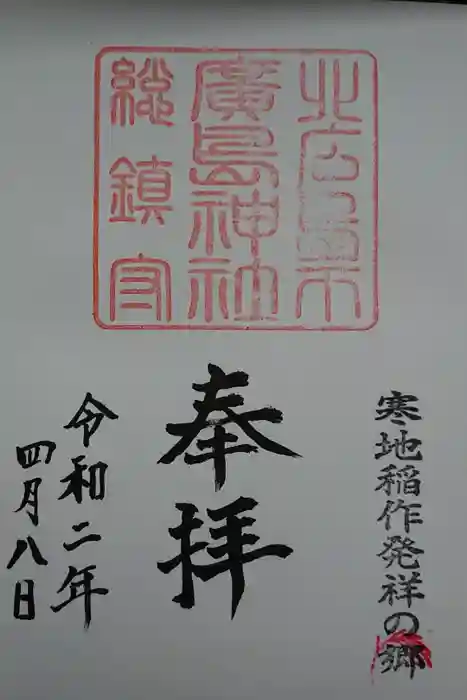 北広島市
廣島神社
総鎮守
寒地稲作発祥の郷
奉拝
令和二年
四月八日